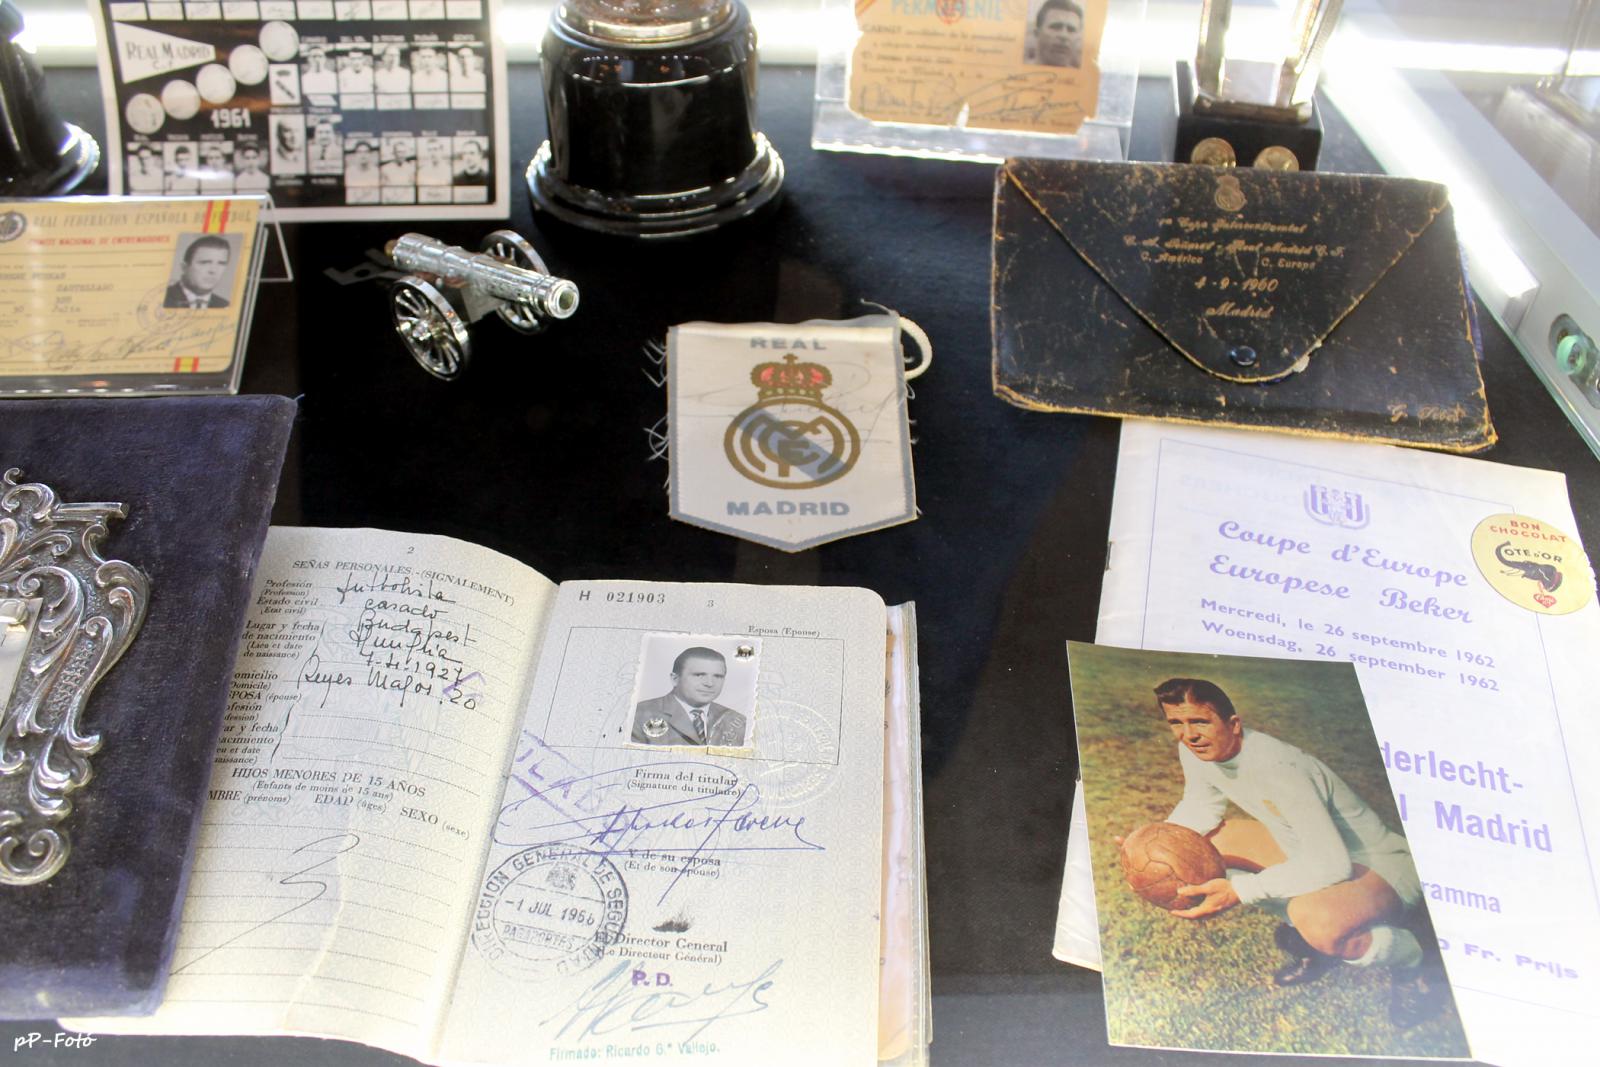 REAL MADRID
C.F.
1961
PERMANENTE
REAL FEDERACION ESPAÑOLA DE FUTBOL
COMITE NACIONAL DE ENTRENADORES
CASTELLANO
30 Julio
REAL
MADRID
1ª Copa Intercontinental
C. A. Peñarol - Real Madrid C. F.
C. América C. Europa
4 - 9 - 1960
Madrid
Coupe d'Europe
Europese Beker
Mercredi, le 26 septembre 1962
Woensdag, 26 september 1962
BON
CHOCOLAT
COTE D'OR
derlecht-
l Madrid
ramma
Fr. Prijs
2
SEÑAS PERSONALES - (SIGNALEMENT)
Profesión futbolista
(Profession)
Estado civil casado
(Etat civil)
Lugar y fecha Budapest
de nacimiento Hungría
(Lieu et date
de naissance) 1927
omicilio Reyes Magos. 20
Domicile)
SPOSA (épouse)
ofesión
fession)
ar y fecha
nacimiento
eu et date
naissance)
HIJOS MENORES DE 15 AÑOS
(Enfants de moins de 15 ans)
MBRE (prénoms) EDAD (âges) SEXO (sexe)
H 021903
3
Esposa (Epouse)
Firma del titular
(Signature du titulaire)
Y de su esposa
(Et de son épouse)
DIRECCION GENERAL DE SEGURIDAD
-1 JUL 1966
PASAPORTES
El Director General
(Le Directeur Général)
P. D.
Firmado: Ricardo G.ª Vallejo.
pP-Fotó